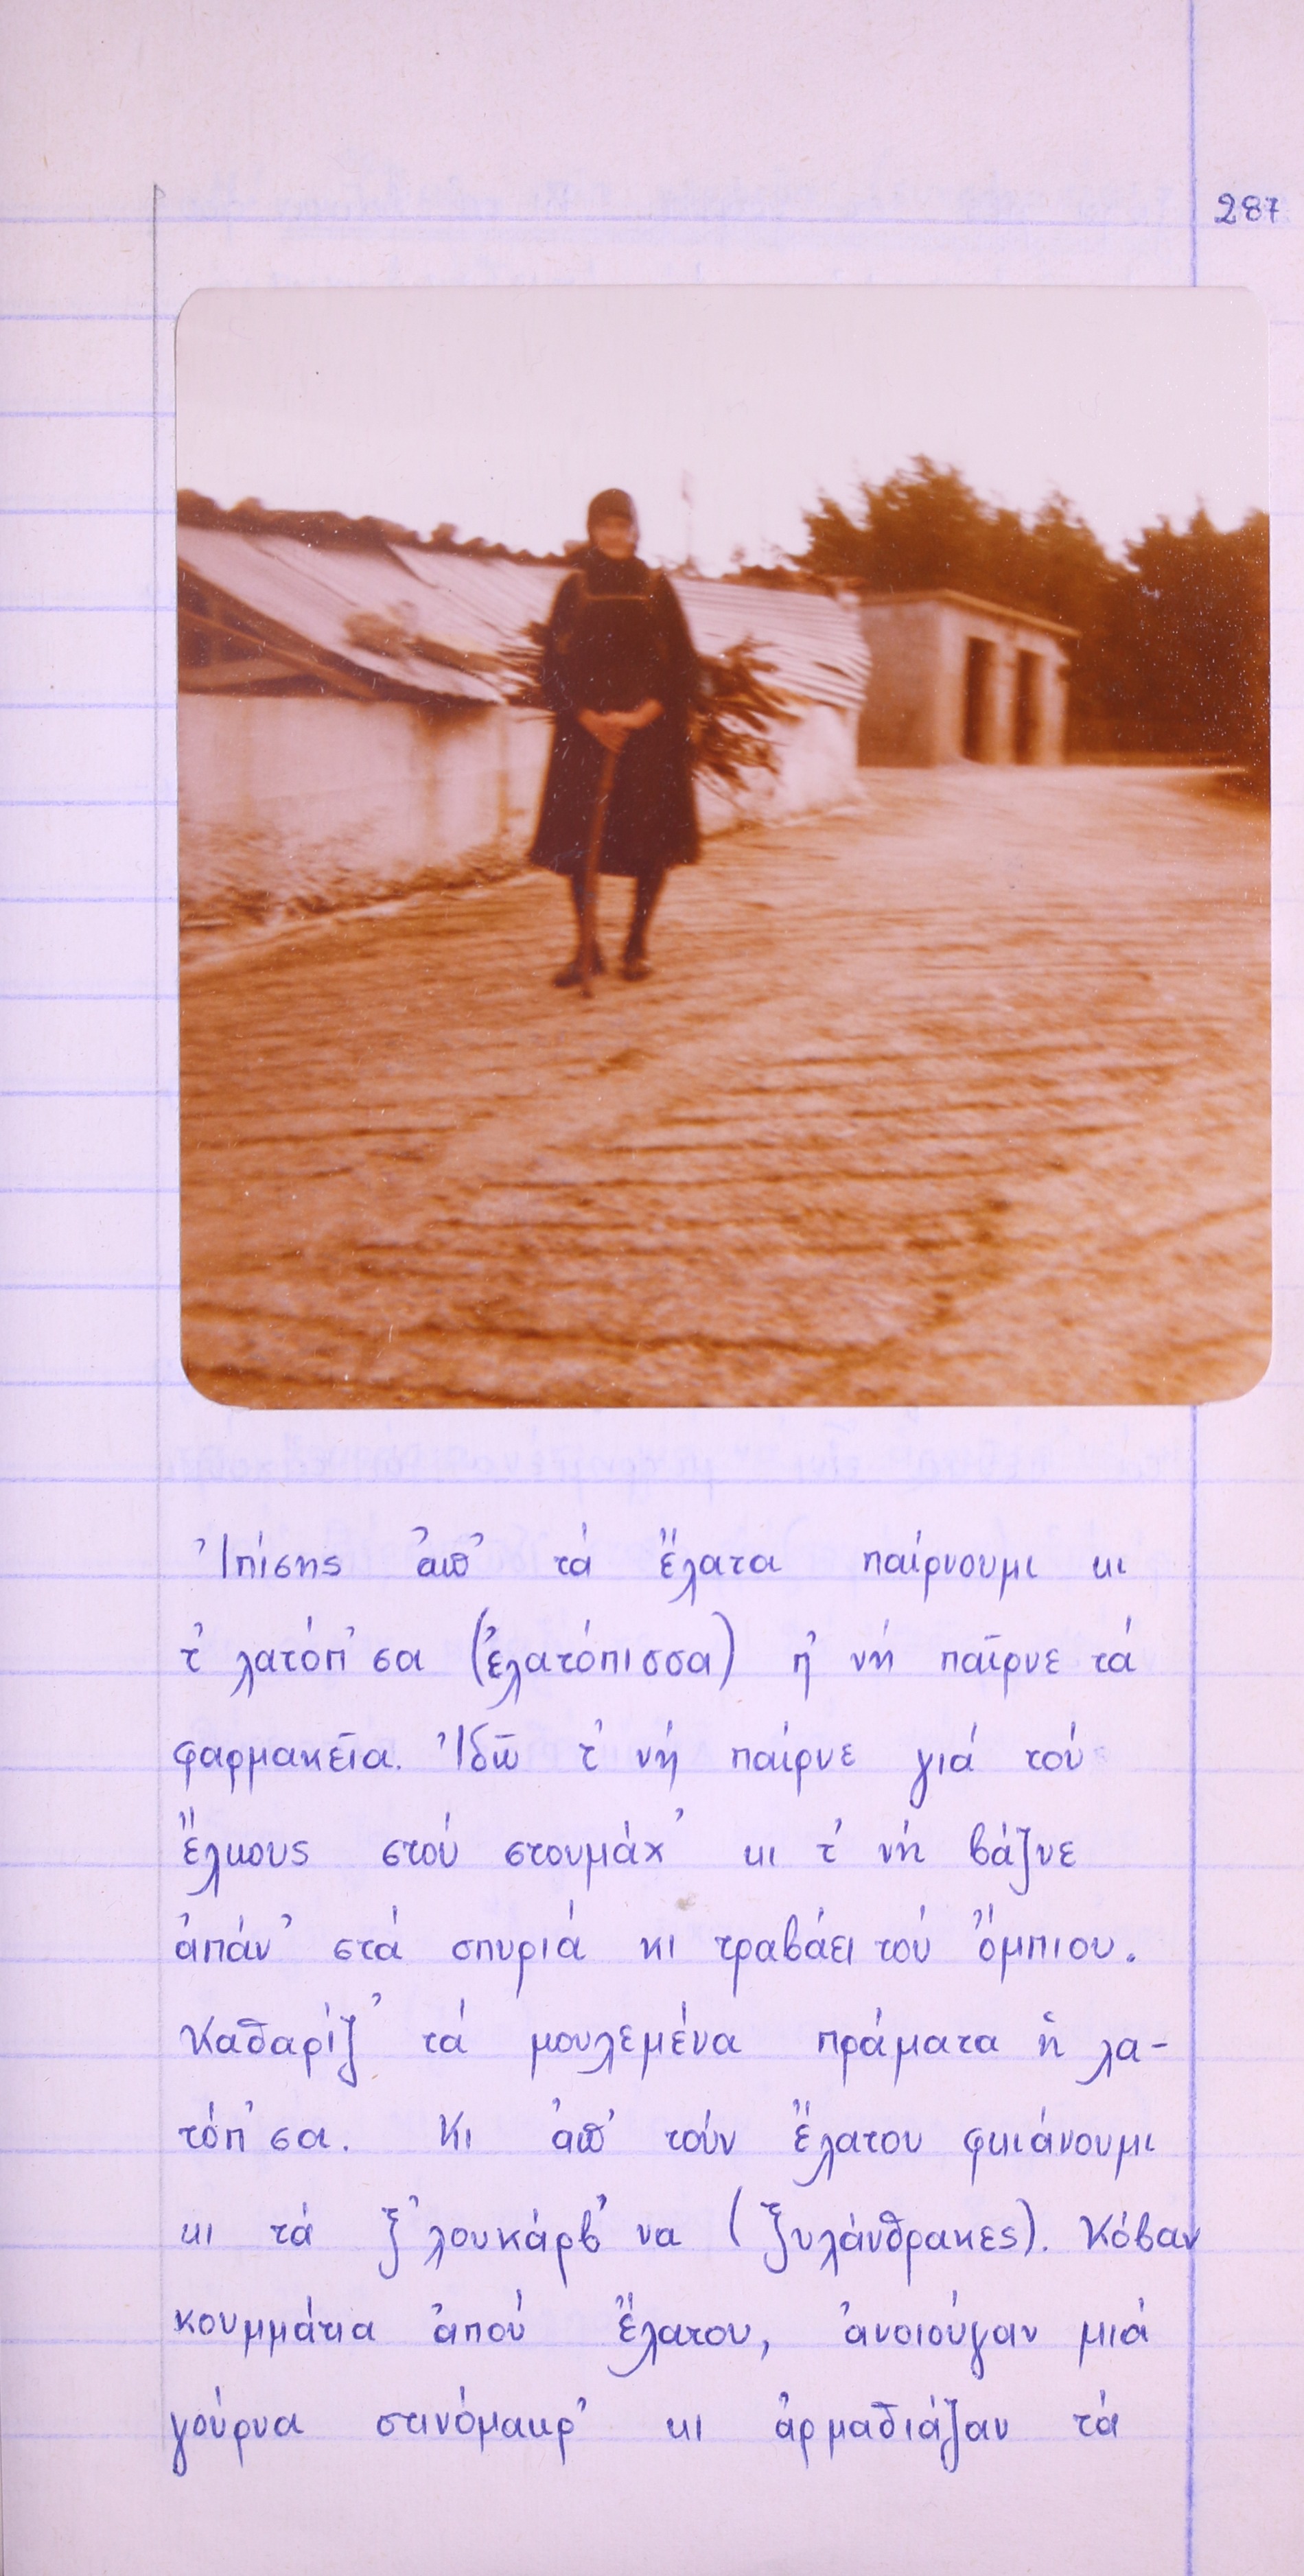 287
Ἰπίσης ἀπ᾽ τά ἔλατα παίρνουμι κι
τ᾽ λατόπ᾽σα (ἐλατόπισσα) π᾽ νή παῖρνε τά
φαρμακεῖα. Ἰδῶ τ᾽ νή παίρνε γιά τού
ἕλκους στού στουμάχ᾽ κι τ᾽ νή βάζνε
ἀπάν᾽ στά σπυριά κι τραβάει τού ὄμπιου.
Καθαρίζ᾽ τά μουλεμένα πράματα ἡ λα-
τόπ᾽σα. Κι ἀπ᾽ τούν ἔλατου φκιάνουμι
κι τά ξ᾽λουκάρβ᾽να (ξυλάνθρακες). Κόβαν
κουμμάτια ἀπού ἔλατου, ἀνοιούγαν μιά
γούρνα στινόμακρ᾽ κι ἀρμαθιάζαν τά